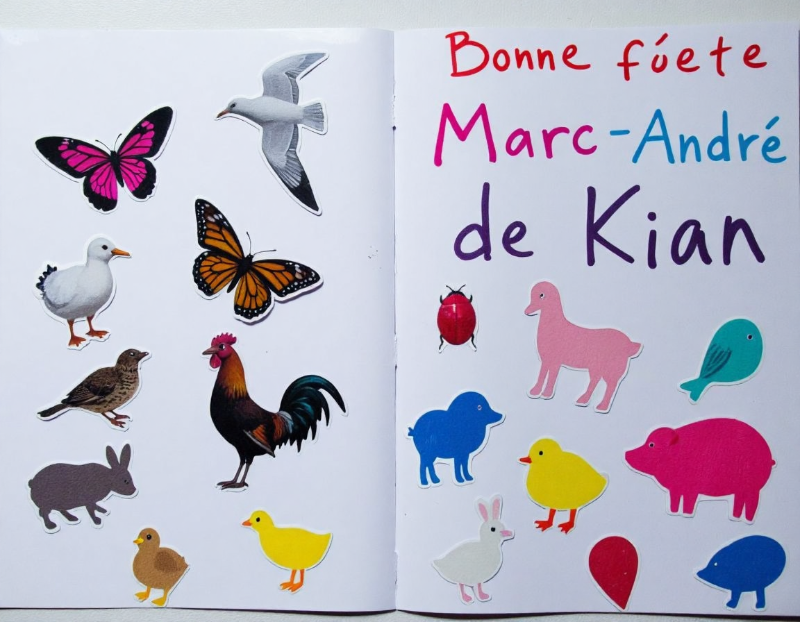 Bonne fúete
Marc-André
de Kian